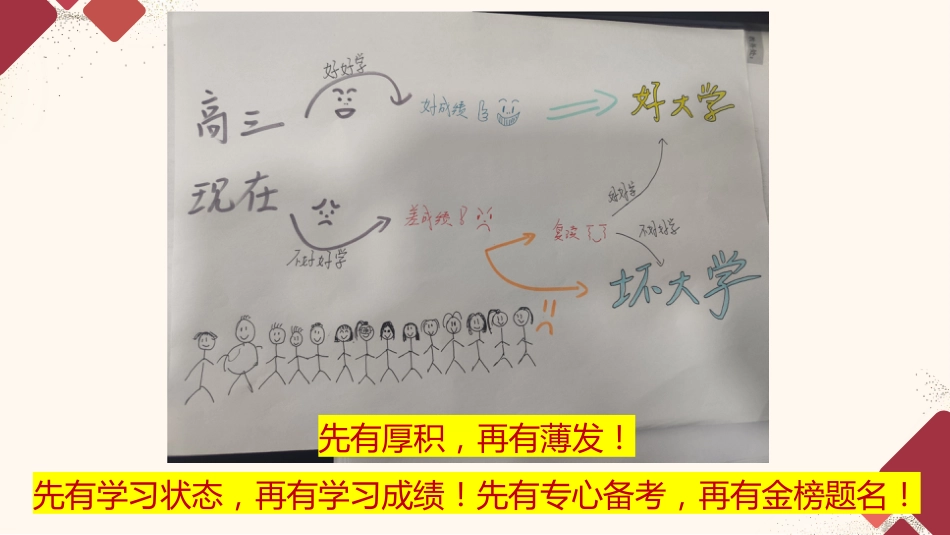 好好学
高三
好成绩
好大学
现在
好好学
差成绩！
复读
不好好学
不好好学
坏大学
先有厚积，再有薄发！
先有学习状态，再有学习成绩！先有专心备考，再有金榜题名！